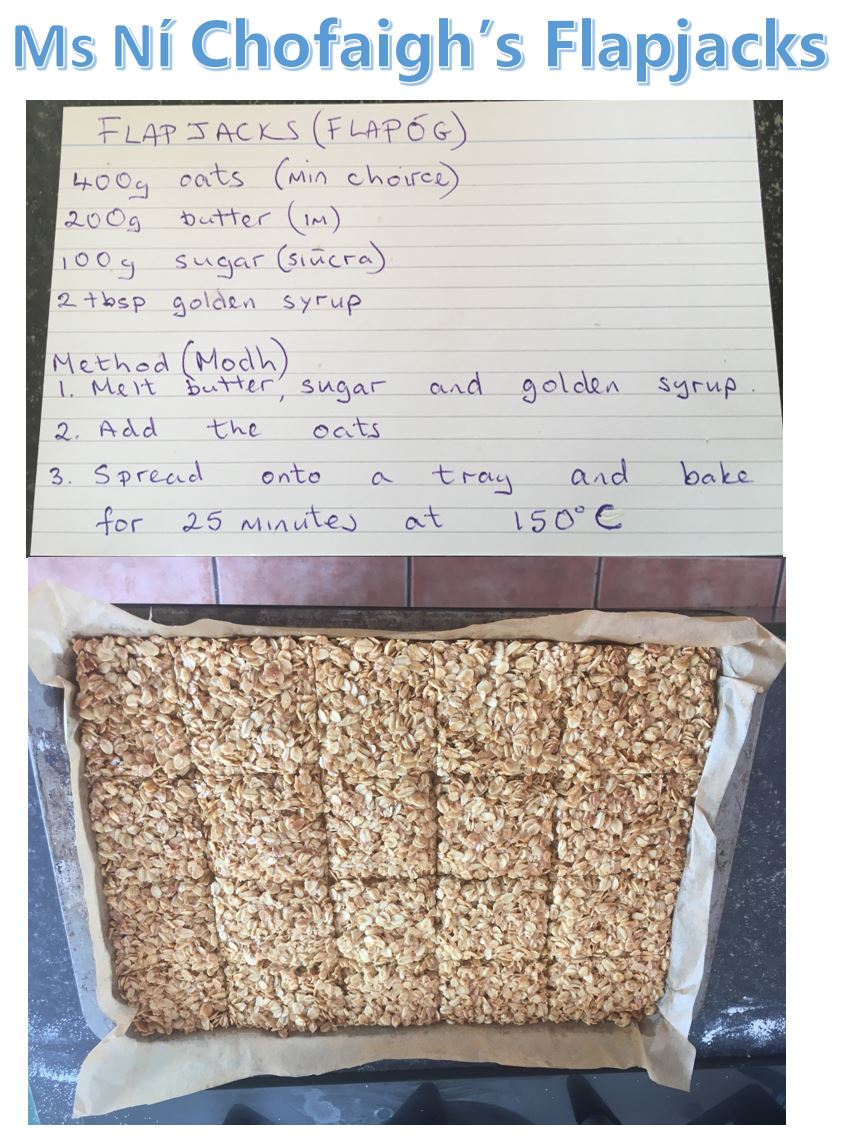 Ms Ní Chofaigh's Flapjacks
FLAPJACKS (FLAPÓG)
400g oats (min choirce)
200g butter (im)
100g sugar (siúcra)
2 tbsp golden syrup
Method (Modh)
1. Melt butter, sugar and golden syrup.
2. Add the oats
3. Spread onto a tray and bake
for 25 minutes at 150°C